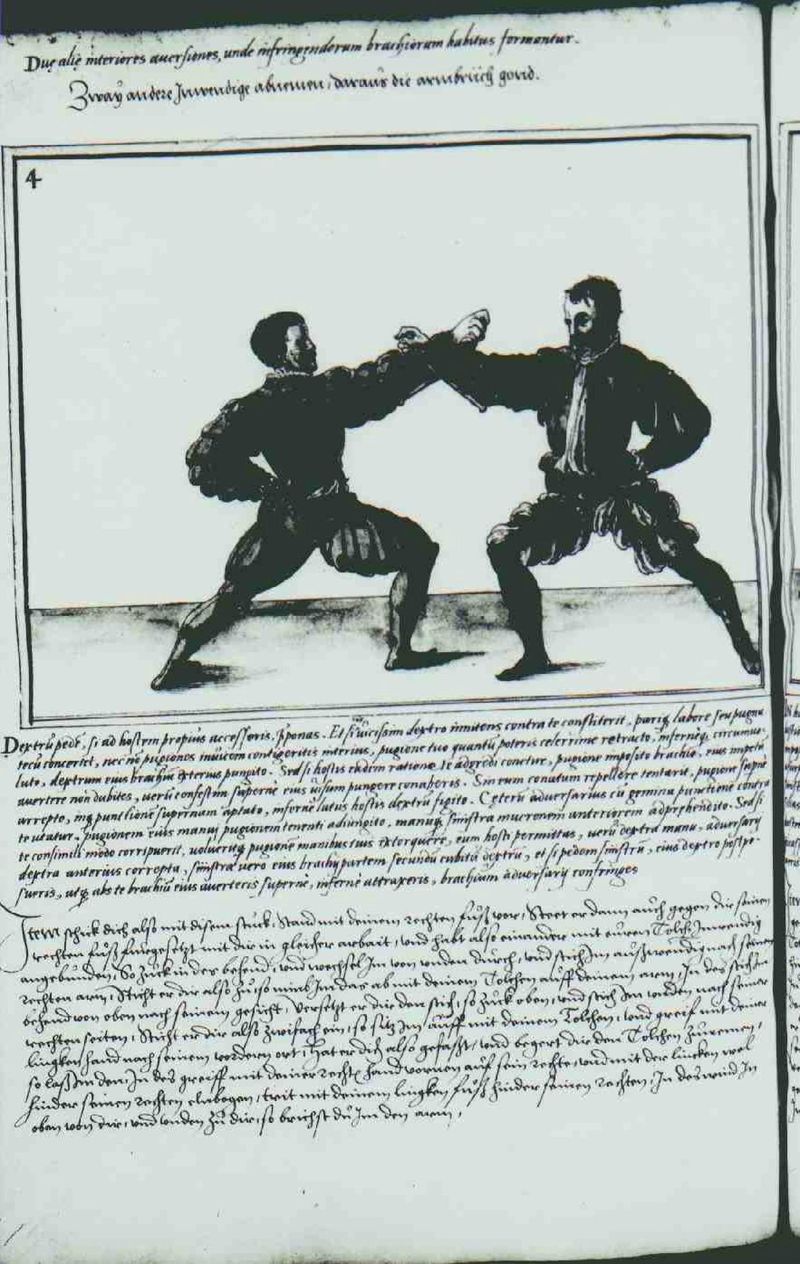 Duę alię interiores auersiones, unde infringendorum brachiorum habitus formantur.
Zway andere Inwendige abnemen, daraus die armbrüch gond.
4
Dextrū pedē, si ad hostem propius accesseris, p̄ponas. Et si vicissim dextro innitens contra te constiterit, pariq̨ labore seu pugna
tecū concertet, nec nō pugiones inuicem contigeritis interius, pugione tuo quantū poteris celerrime retracto, inferneq̨ circumuo-
luto, dextrum eius brachiū exterius pungito. Sed si hostis eadem ratione te adgredi conetur, pugione imposito brachio, eius impetū
auertere non dubites, uerū confestim superne eius uisum pungere conaberis. Sin eum conatum repellere tentarit, pugione supne
arrepto, inq̨ punctione suprema aptato, inferne latus hostis dextrū figito. Ceterū aduersarius cū gemina punctione contra
te utatur, pugionem eius manui pugionem tenenti adiungito, manuq̨ sinistra mucronem anteriorem adprehendito. Sed si
te consimili modo corripuerit, volueritq̨ pugionē manibus tuis extorquere, eum hosti permittas, uerū dextra manu, aduersarij
dextra anterius correpta, sinistra uero eius brachij partem secundū cubitū dextrū, et si pedem sinistrū, eius dextro postpo-
sueris, atq̨ abs te brachiū eius auerteris superne, inferne attraxeris, brachium aduersarij confringes
Item schick dich also mit disem stuck, Stand mit deinem rechten fuß vor, Steet er dann auch gegen dir seinen
rechten fuß fürgesetzt mit dir in gleicher arbait, vnd habt also einander mit euren Tolchen Inwendig
angebunden, So zuck in des behend, vnd wechsel Im von vnden durch, vnd stich Im auswendig nach seinem
rechten arm, Sticht er dir also zu, so nimb Im das ab mit deinem Tolchen auff deinem arm, In des stich Im
behend von oben nach seinem gesicht, Versetzt er dir den stich, so zuck oben, vnd stich Im vnden nach seiner
rechten seiten, Sticht er dir also zwifach ein, so sitz Im auff mit deinem Tolchen, vnd greif mit deiner
lingken hand nach seinem vordern ort, Hat er dich also gefasst, vnd begert dir den Tolchen zunemen,
so laß Im den, In des greiff mit deiner rechtn hand vornen auf sein rechte, vnd mit der lincken wol
hinder seinen rechten elnbogen, trit mit deinem lingken fuß hinder seinen rechten, In des wind Im
oben von dir, vnd vnden zu dir, so brichst du Im den arm,